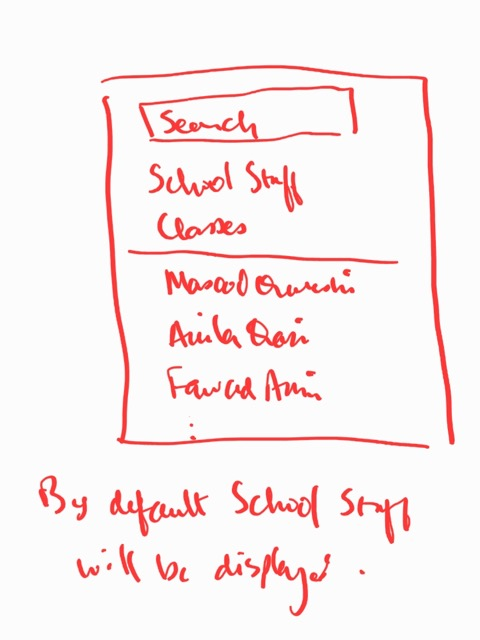 Search
School Staff
Classes
Masood Qureshi
Anila Qazi
Fawad Amin
:
By default School Staff
will be displayed.